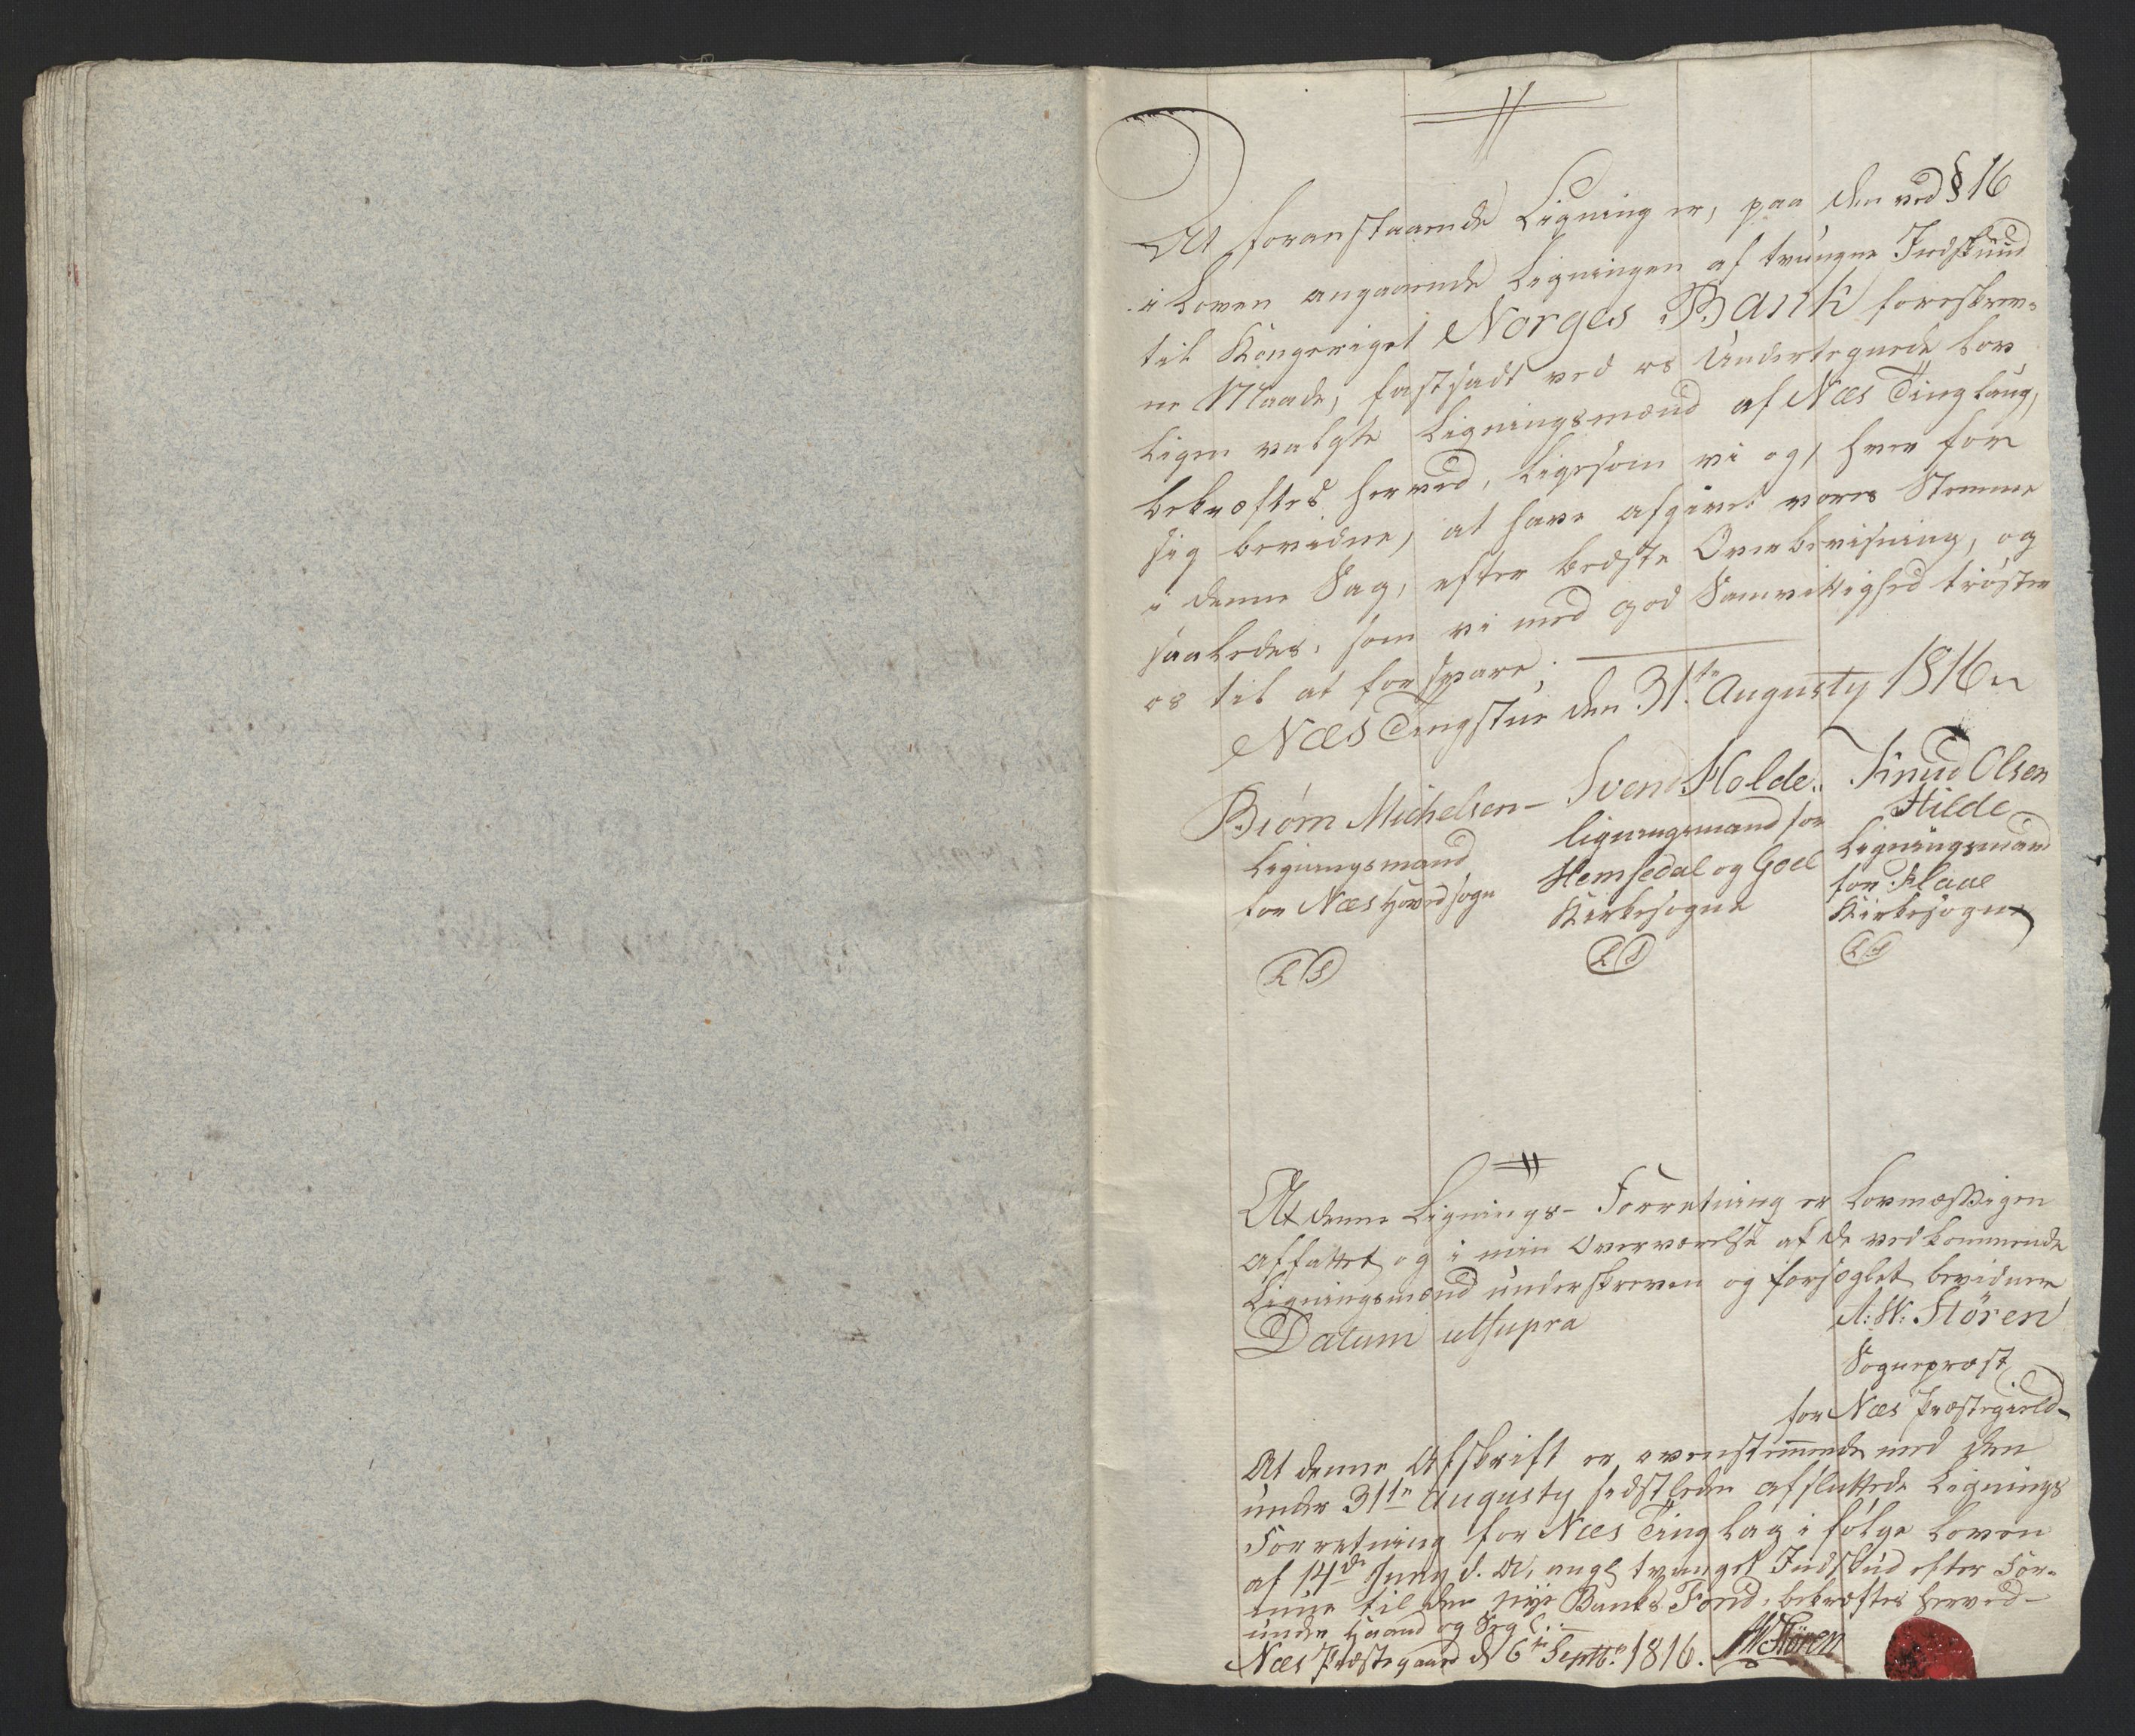 At foranstaaende Ligning er, paa den ved § 16
i Loven angaaende Ligningen af tvungne Indskud
til Kongeriget Norges Bank foreskrev-
ne Maade, fastsadt ved os Undertegnede Lov
ligen valgte Ligningsmænd af Næs Tinglaug,
bekræftes herved, ligesom vi og, hver for
sig bevidne, at have afgivet vores Stemme
i denne Sag, efter bedste Overbevisning, og
saaledes, som vi med god Samvittighed trøster
os til at forsvare.
Næs Tingstue den 31te Augusty 1816
Biørn Michelsen - Svend Holde. Knud Olsen
Hilde
Ligningsmand ligningsmand for Ligningsmand
for Næs Hovedsogn Hemsedal og Goel for Aal
Kirkesogne Kirkesogn
LS LS LS
At denne Lignings-Forretning er Lovmæssigen
affattet og i min Overværelse af de vedkommende
Ligningsmænd underskreven og forseglet bevidner
Datum utsupra A: W: Stören
Sognepræst
for Næs Præstegield
At denne Afskrift er overenstemmende med den
under 31te Augusty sidstleden afsluttede Lignings
Forretning for Næs Tinglag i følge Loven
af 14de Juny d. A. angl. tvunget Indskud efter For-
mue til den nye Banks Fond, bekræftes herved
under Haand og Segl.
Næs Præstegaard d 6te Septbr 1816. AWStören